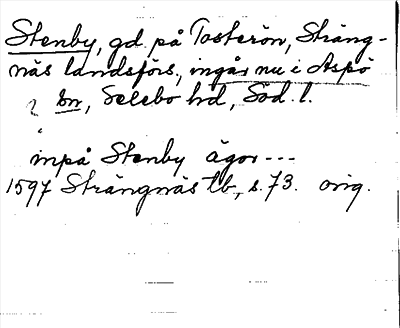 Stenby, gd. på Tosterön, Sträng-
näs landsförs., ingår nu i Aspö
? sn, Selebo hd, Söd. l.
inpå Stenby ägor ---
1597 Strängnäs tb, s. 73. orig.